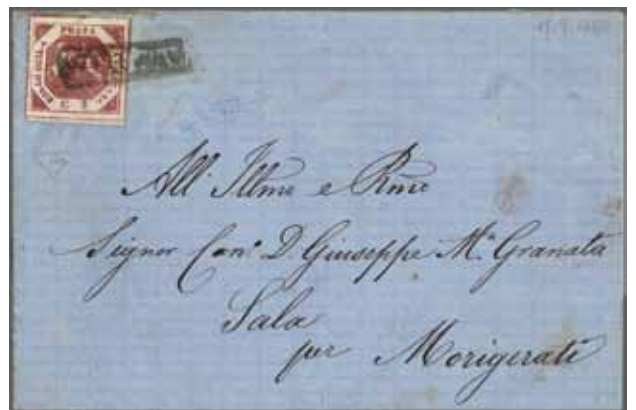 POSTA
G. 2
All' Illmo e Rmo
Signor Can.º D. Giuseppe M.ª Granata
Sala
per Morigerati